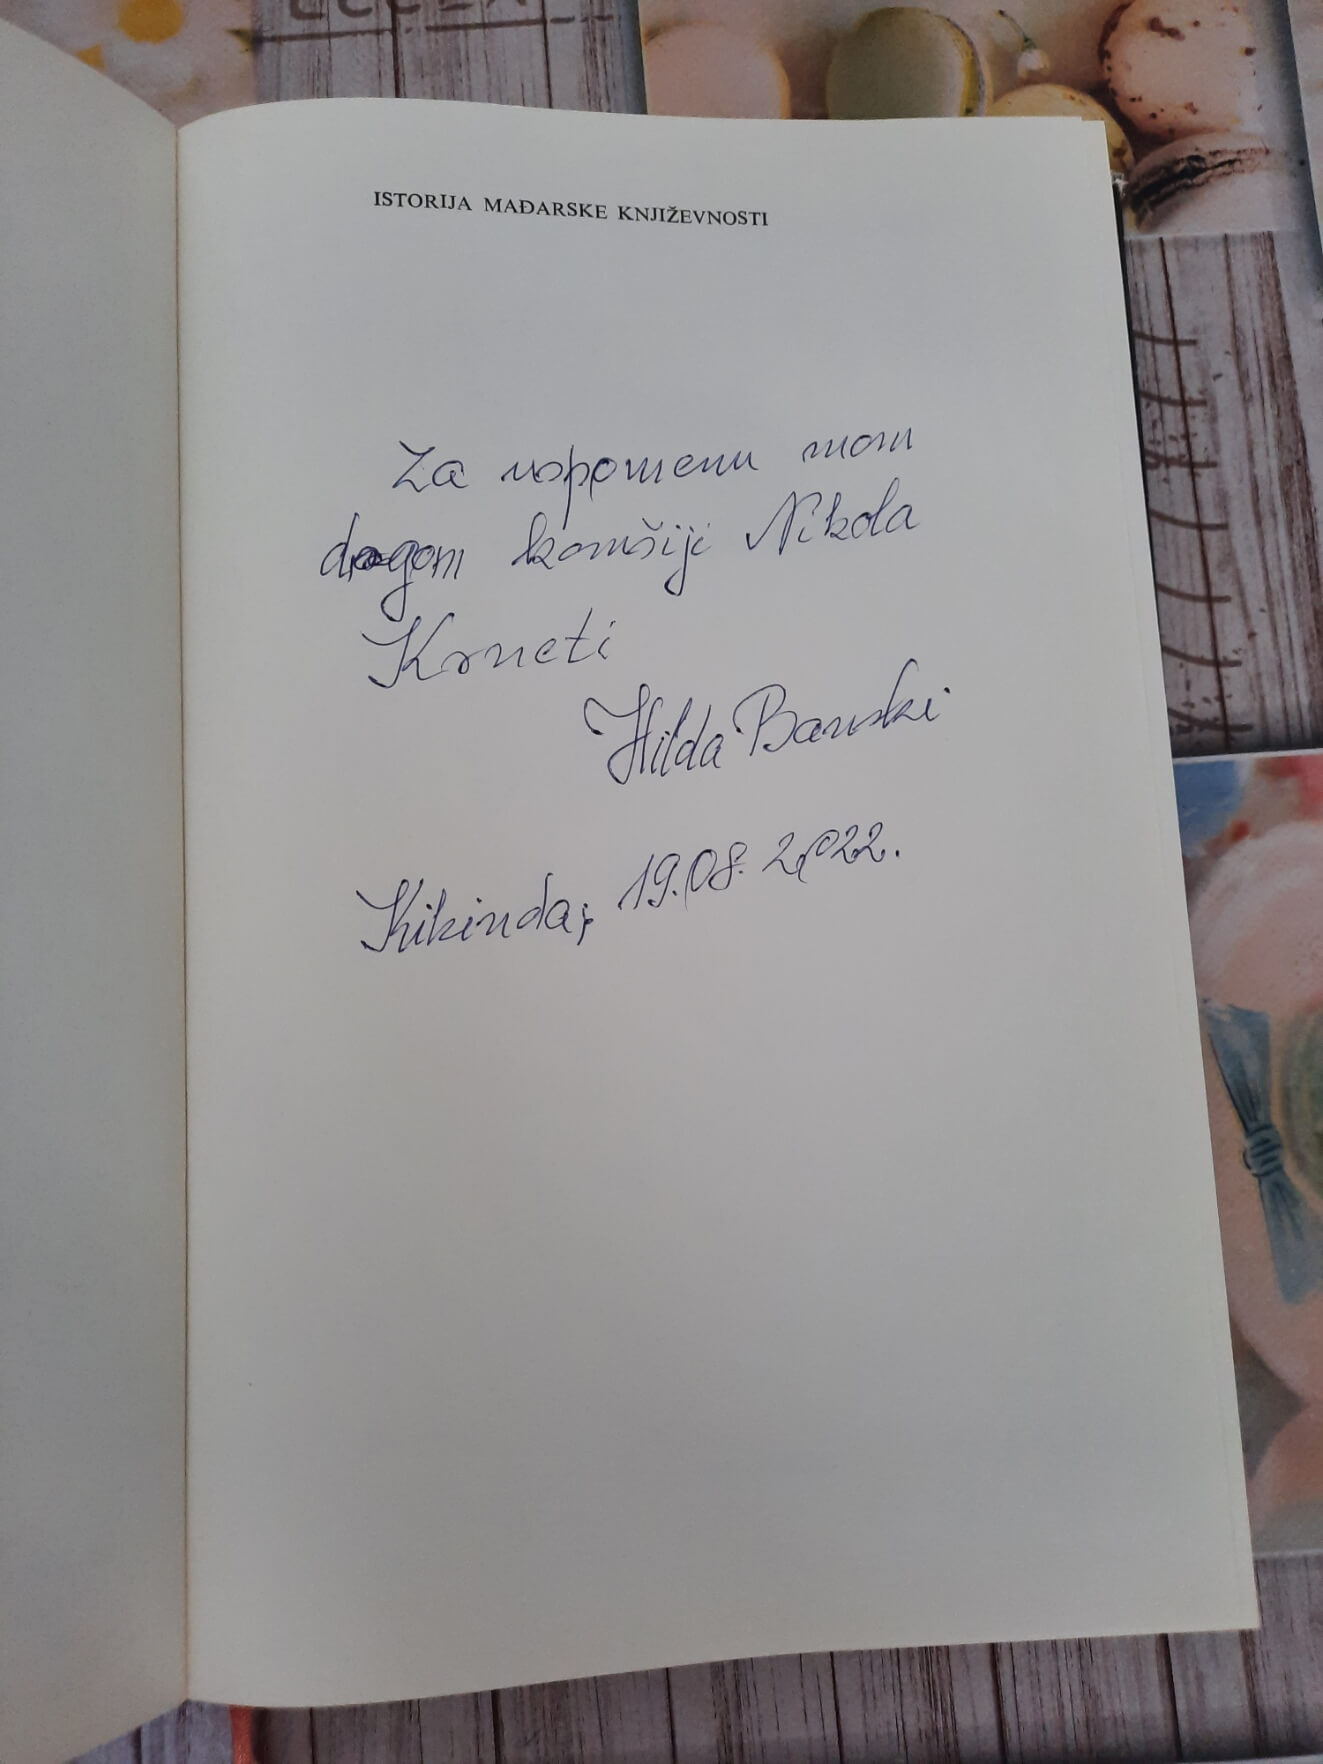 ISTORIJA MAĐARSKE KNJIŽEVNOSTI
Za uspomenu mom
dragom komšiji Nikola
Krneti
Hilda Banski
Kikinda, 19.08.2022.